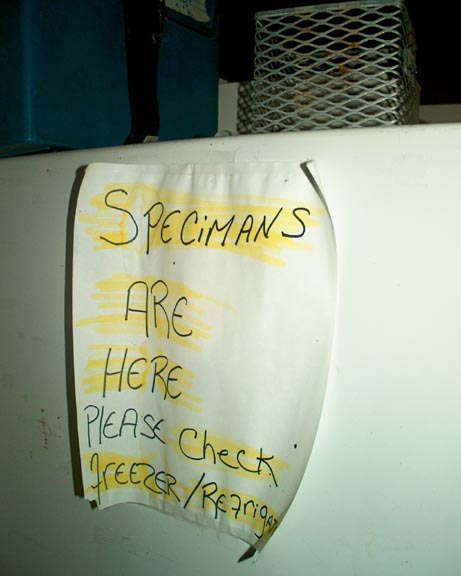 SPECiMANS
ARE
HERE
PLEASE Check
FREEZER/REFrigAT